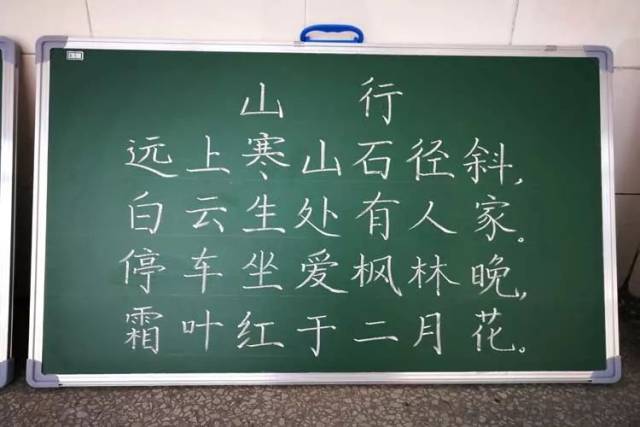 山行
远上寒山石径斜,
白云生处有人家。
停车坐爱枫林晚,
霜叶红于二月花。